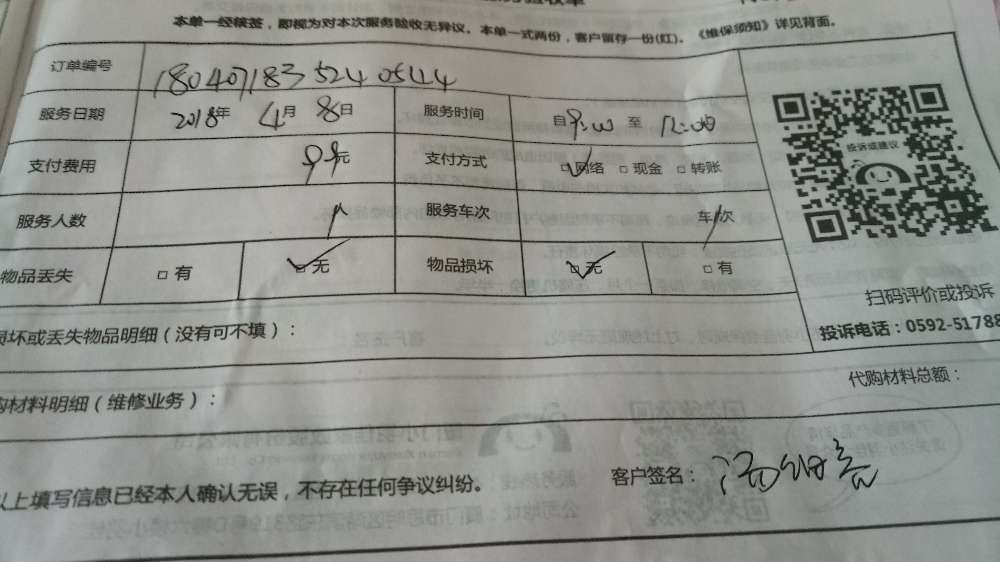 本单一经核签，即视为对本次服务验收无异议。本单一式两份，客户留存一份(红)。《维保须知》详见背面。
订单编号 180407183524 0544
服务日期 2018年 4月 8日 服务时间 自9:00 至 12:00
支付费用 99元 支付方式 ☑网络 □现金 □转账
投诉或建议
服务人数 1人 服务车次 车/次
物品丢失 □有 ☑无 物品损坏 ☑无 □有
扫码评价或投诉
损坏或丢失物品明细（没有可不填）：
投诉电话：0592-51788
代购材料总额：
购材料明细（维修业务）：
以上填写信息已经本人确认无误，不存在任何争议纠纷。
客户签名：